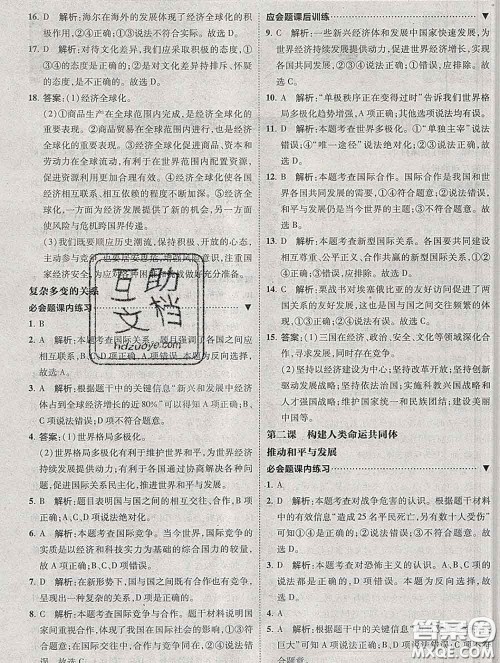 16. D　解析：海尔在海外的发展体现了经济全球化，②④正确；①③说法不正确。故选 D。
17. D　解析：对待文化差异，我们应采取积极的态度，①③④正确；②是对文化差异持排斥、怀疑的态度是不正确的。故选 D。
18. 答案：(1)经济全球化。
(2)①商品生产在全球范围内完成，是经济全球化的重要表现。②商品贸易在全球范围内进行，也是经济全球化的重要表现。③经济全球化促进商品、资本和劳动力在全球流动，有利于在世界范围内配置资源，提高资源利用效率。④经济全球化使各国经济相互联系、相互依赖的程度不断加深。⑤经济全球化，一方面为经济发展提供了新的机会，另一方面使风险与危机跨国界传递。
(3)我们既要顺应历史潮流，保持积极、开放的心态，主动参与竞争，也要居安思危，增强风险意识，注重国家经济安全，为应对各种困难与挑战做好充分准备。
复杂多变的关系
必会题课内练习
1. B
2. A　解析：本题考查国际关系。题目强调了各国之间应相互联系，A 正确；B、C、D 项说法不正确。
3. A　解析：根据题干中的关键信息“新兴和发展中经济体占到全球经济增长的近 80%”可知，A 项正确；B、C、D 项不符合题意。
4. 答案：①世界格局多极化。
②世界格局多极化有利于维护世界和平、世界经济持续发展，有利于各国通过协商解决各种问题，促进国际关系民主化。
5. D　解析：本题考查国与国之间的相互交往、合作，D 项正确；A、B、C 项说法绝对。
6. A　解析：本题考查国际竞争。当今世界，国际竞争的实质是以经济和科技实力为基础的综合国力的较量。故选 A。
7. D　解析：在新形势下，国与国之间有合作也有竞争，D 项正确；A、B、C 项说法绝对。
8. C　解析：本题考查国际关系。根据题干中的描述，国家间开展合作有着重大的国际社会的影响，①②③④说法正确。故选 C。
应会题课后训练
9. C　解析：一些新兴经济体和发展中国家快速发展，为世界经济持续向好提供强大动力，有利于世界格局实现各国共同发展，②③正确；①错误，④不符合题意。故选 C。
10. A　解析：“单极秩序正在变得过时”告诉我们世界格局多极化趋势增强，A 正确；B、C、D 不符合题意。
11. D　解析：本题考查世界多极化。①“单独主宰”说法错误；④“唯一途径”说法错误；②③正确。故选 D。
12. D　解析：本题考查国际合作。国际合作是我国和世界各国共同发展的需要，①②④正确；③不符合题意。故选 D。
13. A　解析：本题考查新型国际关系。推动建设相互尊重、公平正义、合作共赢的新型国际关系有利于各国共同发展。故选 A。
14. C　解析：栗战书对埃塞俄比亚等国的出访体现了国与国之间的正常外交，有利于国与国之间交往频繁的体现，①②③正确；④说法错误。故选 C。
15. 答案：(1)三国在经济、政治、文化、安全等领域深化合作，寻求共同发展。
(2)坚持以经济建设为中心；坚持改革开放；坚持走中国特色社会主义道路；实施科教兴国战略和人才强国战略；维护国家统一和民族团结；发展民主政治，建设民主国家等。
第二课　构建人类命运共同体
推动和平与发展
必会题课内练习
1. A
2. D　解析：本题考查对战争危害的认识。根据题干材料中的有效信息“造成 25 名平民死亡，另有数十人受到严重伤害”可知①④正确；②不符合题意；③错误。故选 D。
3. D　解析：本题考查对和平与发展的认识。①④两项说法错误；②③两项说法正确。故选 D。
4. A　解析：本题考查对战争的认识。
巨大”可知①③正确；②不符合题意；④错误
互助文档
hdzuoye.com
答案圈
MXQE.COM